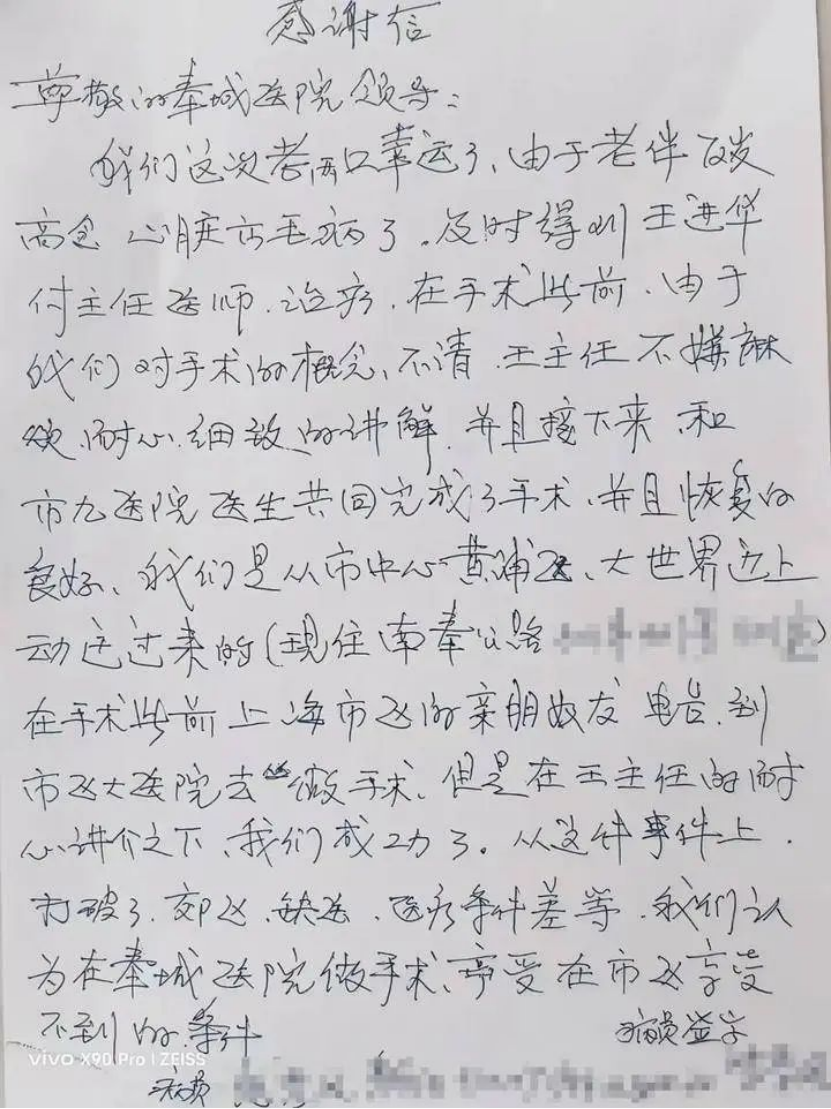 感谢信
尊敬的奉城医院领导：
我们这次老两口幸运了、由于老伴 百岁
高仓 心脏方毛病了.及时得到 王进华
付主任医师.治疗.在手术此前.由于
我们对手术的概念、不清.王主任不嫌麻
烦、耐心.细致的讲解.并且接下来.和
市九医院医生共同完成了手术、并且恢复的
良好、我们是从市中心黄浦区、大世界边上
动迁过来的(现住南奉公路 )
在手术此前上海市区的亲朋好友 电告.到
市区大医院去做手术、但是在王主任的耐
心讲介之下、我们成功了。从这件事件上.
打破了.郊区.缺医.医疗条件差等.我们认
为在奉城医院做手术、享受在市区享受
不到的条件
病员签字
vivo X90 Pro | ZEISS
病员